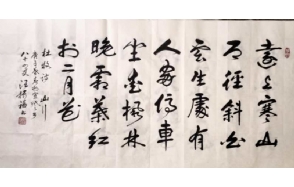 遠上寒山
石徑斜白
雲生處有
人家停車
坐愛楓林
晚霜葉紅
於二月花
杜牧詩 山行